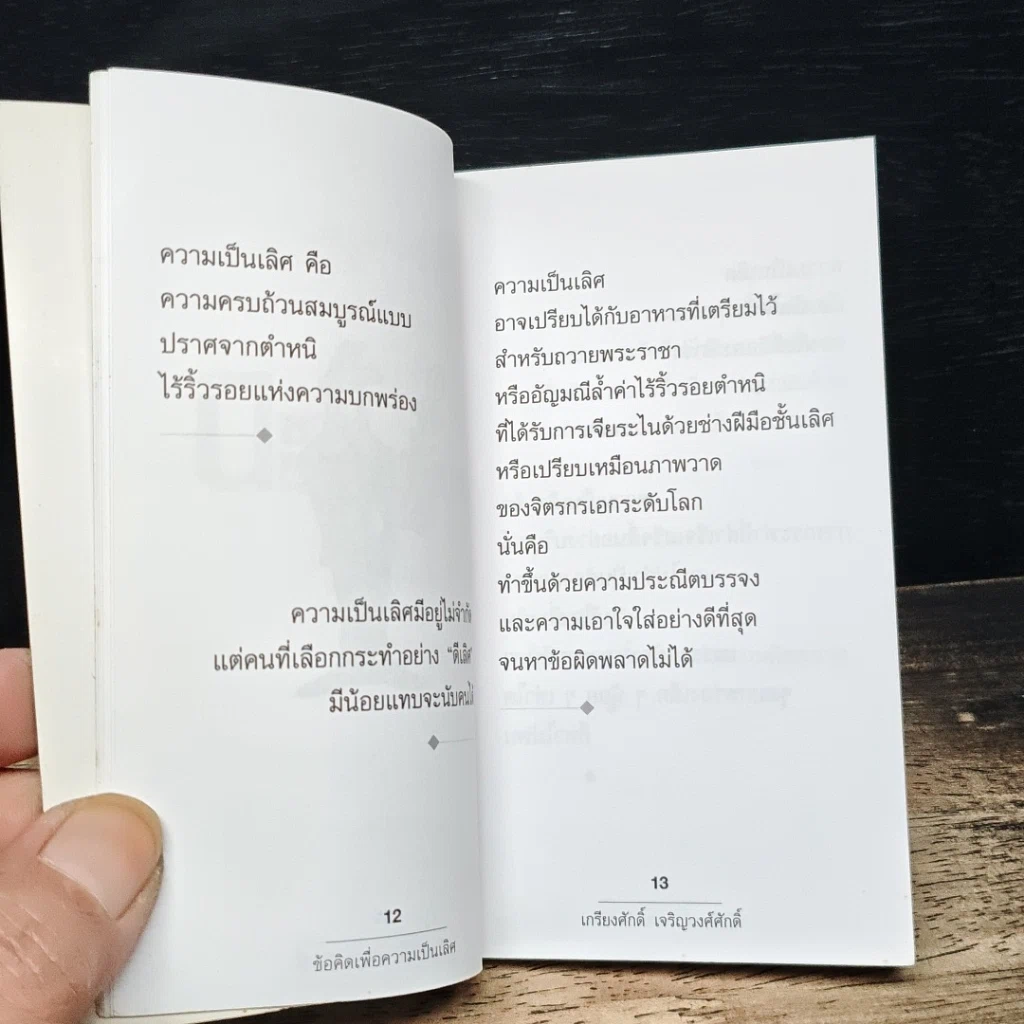 ความเป็นเลิศ คือ
ความครบถ้วนสมบูรณ์แบบ
ปราศจากตำหนิ
ไร้ริ้วรอยแห่งความบกพร่อง
ความเป็นเลิศมีอยู่ไม่จำกัด
แต่คนที่เลือกกระทำอย่าง "ดีเลิศ"
มีน้อยแทบจะนับคนได้
12
ข้อคิดเพื่อความเป็นเลิศ
ความเป็นเลิศ
อาจเปรียบได้กับอาหารที่เตรียมไว้
สำหรับถวายพระราชา
หรืออัญมณีล้ำค่าไร้ริ้วรอยตำหนิ
ที่ได้รับการเจียระไนด้วยช่างฝีมือชั้นเลิศ
หรือเปรียบเหมือนภาพวาด
ของจิตรกรเอกระดับโลก
นั่นคือ
ทำขึ้นด้วยความประณีตบรรจง
และความเอาใจใส่อย่างดีที่สุด
จนหาข้อผิดพลาดไม่ได้
13
เกรียงศักดิ์ เจริญวงศ์ศักดิ์